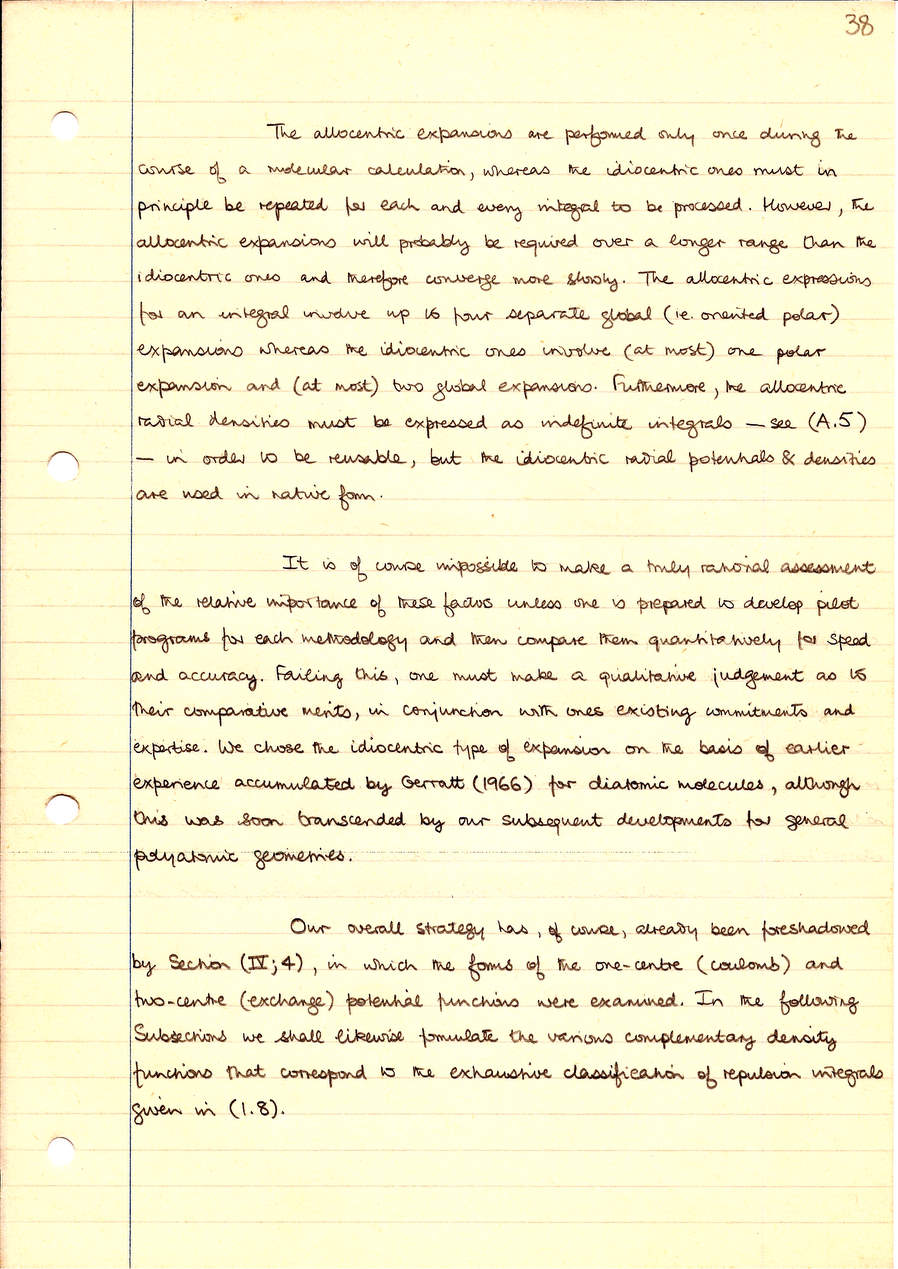 38
The allocentric expansions are performed only once during the
course of a molecular calculation, whereas the idiocentric ones must in
principle be repeated for each and every integral to be processed. However, the
allocentric expansions will probably be required over a longer range than the
idiocentric ones and therefore converge more slowly. The allocentric expressions
for an integral involve up to four separate global (ie. oriented polar)
expansions whereas the idiocentric ones involve (at most) one polar
expansion and (at most) two global expansions. Furthermore, the allocentric
radial densities must be expressed as indefinite integrals — see (A.5)
— in order to be reusable, but the idiocentric radial potentials & densities
are used in native form.
It is of course impossible to make a truly rational assessment
of the relative importance of these factors unless one is prepared to develop pilot
programs for each methodology and then compare them quantitatively for speed
and accuracy. Failing this, one must make a qualitative judgement as to
their comparative merits, in conjunction with ones existing commitments and
expertise. We chose the idiocentric type of expansion on the basis of earlier
experience accumulated by Gerratt (1966) for diatomic molecules, although
this was soon transcended by our subsequent developments for general
polyatomic geometries.
Our overall strategy has, of course, already been foreshadowed
by Section (IV;4), in which the forms of the one-centre (coulomb) and
two-centre (exchange) potential functions were examined. In the following
Subsections we shall likewise formulate the various complementary density
functions that correspond to the exhaustive classification of repulsion integrals
given in (1.8).